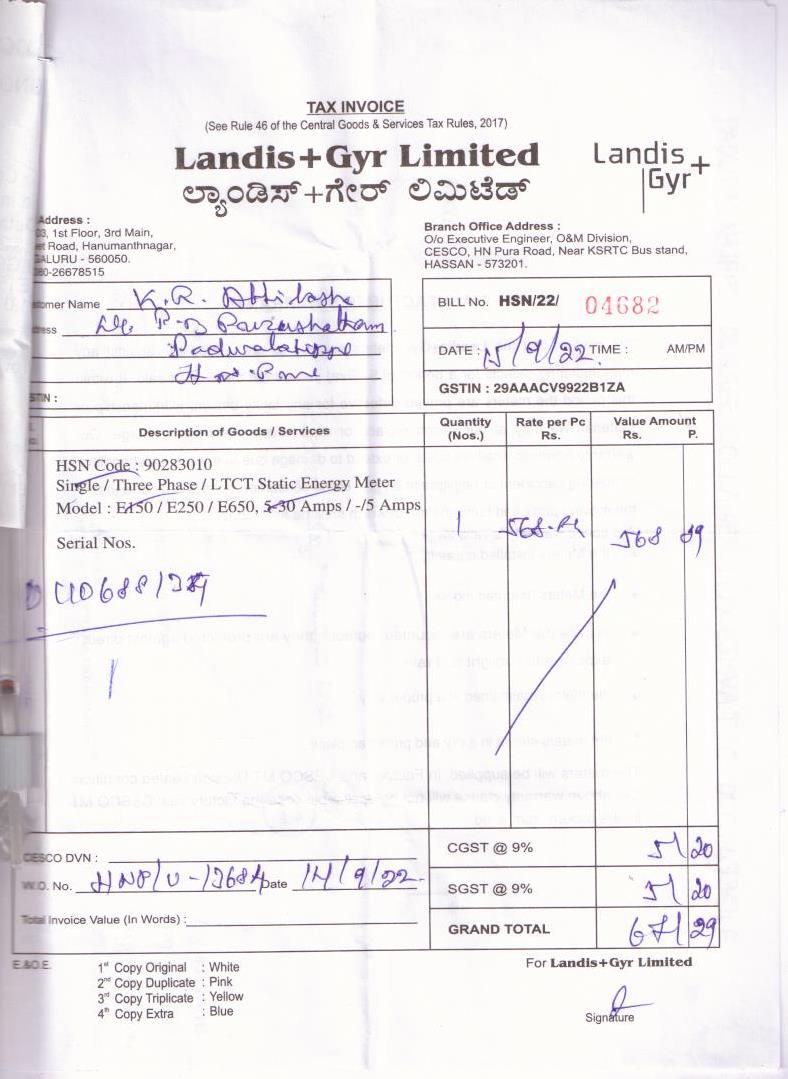 TAX INVOICE
(See Rule 46 of the Central Goods & Services Tax Rules, 2017)
Landis+Gyr Limited
ಲ್ಯಾಂಡಿಸ್+ಗೇರ್ ಲಿಮಿಟೆಡ್
Landis
Gyr+
Address :
1st Floor, 3rd Main,
Road, Hanumanthnagar,
GALURU - 560050.
080-26678515
Branch Office Address :
O/o Executive Engineer, O&M Division,
CESCO, HN Pura Road, Near KSRTC Bus stand,
HASSAN - 573201.
tomer Name K.R.
ress
STIN :
BILL No. HSN/22/ 04682
DATE : 15/9/22. TIME : AM/PM
GSTIN : 29AAACV9922B1ZA
Description of Goods / Services
Quantity (Nos.)
Rate per Pc Rs.
Value Amount Rs. P.
HSN Code : 90283010
Single / Three Phase / LTCT Static Energy Meter
Model : E150 / E250 / E650, 5-30 Amps / -/5 Amps
1 568 89
Serial Nos.
CESCO DVN :
W.O. No. Date 14/9/22.
Total Invoice Value (In Words) :
CGST @ 9% 51 20
SGST @ 9% 51 20
GRAND TOTAL 671 29
E.&O.E.
1st Copy Original : White
2nd Copy Duplicate : Pink
3rd Copy Triplicate : Yellow
4th Copy Extra : Blue
For Landis+Gyr Limited
Signature